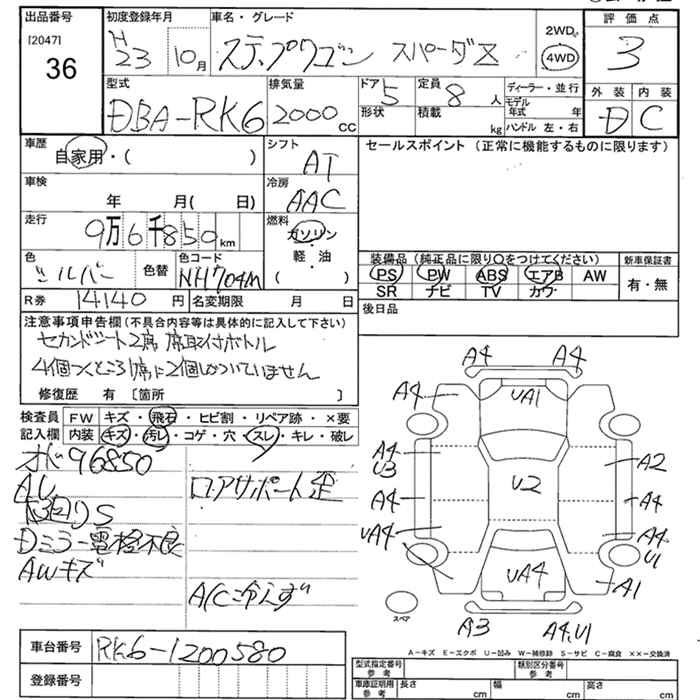 出品番号 初度登録年月 車名・グレード 評価点
[2047] H 23 10月 ステップワゴン スパーダZ 2WD
36 4WD 3
型式 排気量 ドア 5 定員 8人 ディーラー・並行 外装 内装
DBA-RK6 2000 cc 形状 積載 kg モデル年式 年 D C
ハンドル 左・右
車歴 シフト セールスポイント (正常に機能するものに限ります)
自家用・( ) AT
車検 冷房
年 月( 日) AAC
走行 燃料
9万6千850km ガソリン
色 色替 色コード 軽・油 装備品(純正品に限り〇をつけてください) 新車保証書
シルバー NH704M ( ) PS PW ABS エアB AW 有・無
R券 14140円 名変期限 月 日 SR ナビ TV カワ
後日品
注意事項申告欄(不具合内容等は具体的に記入して下さい)
セカンドシート2席 席取付ボトル
4個つくところ1席に2個しかついていません
修復歴 有〔箇所 〕
検査員 FW キズ・飛石・ヒビ割・リペア跡・×要
記入欄 内装 キズ・汚レ・コゲ・穴・スレ・キレ・破レ
96850
ロアサポート歪
S
Dミラー電格不良
AWキズ
A/C冷えず
A4 A4
A4 UA1 A4
A4 U3 A2
A4 U2 A4
UA4 A4 U1
UA4 A1
スペア A3 A4.U1
A-キズ E-エクボ U-凹み W-補修跡 S-サビ C-腐食 ××-交換済
車台番号 RK6-1200580
登録番号
型式指定番号 参考 類別区分番号 参考
車庫証明用 参考 長さ cm 幅 cm 高さ cm